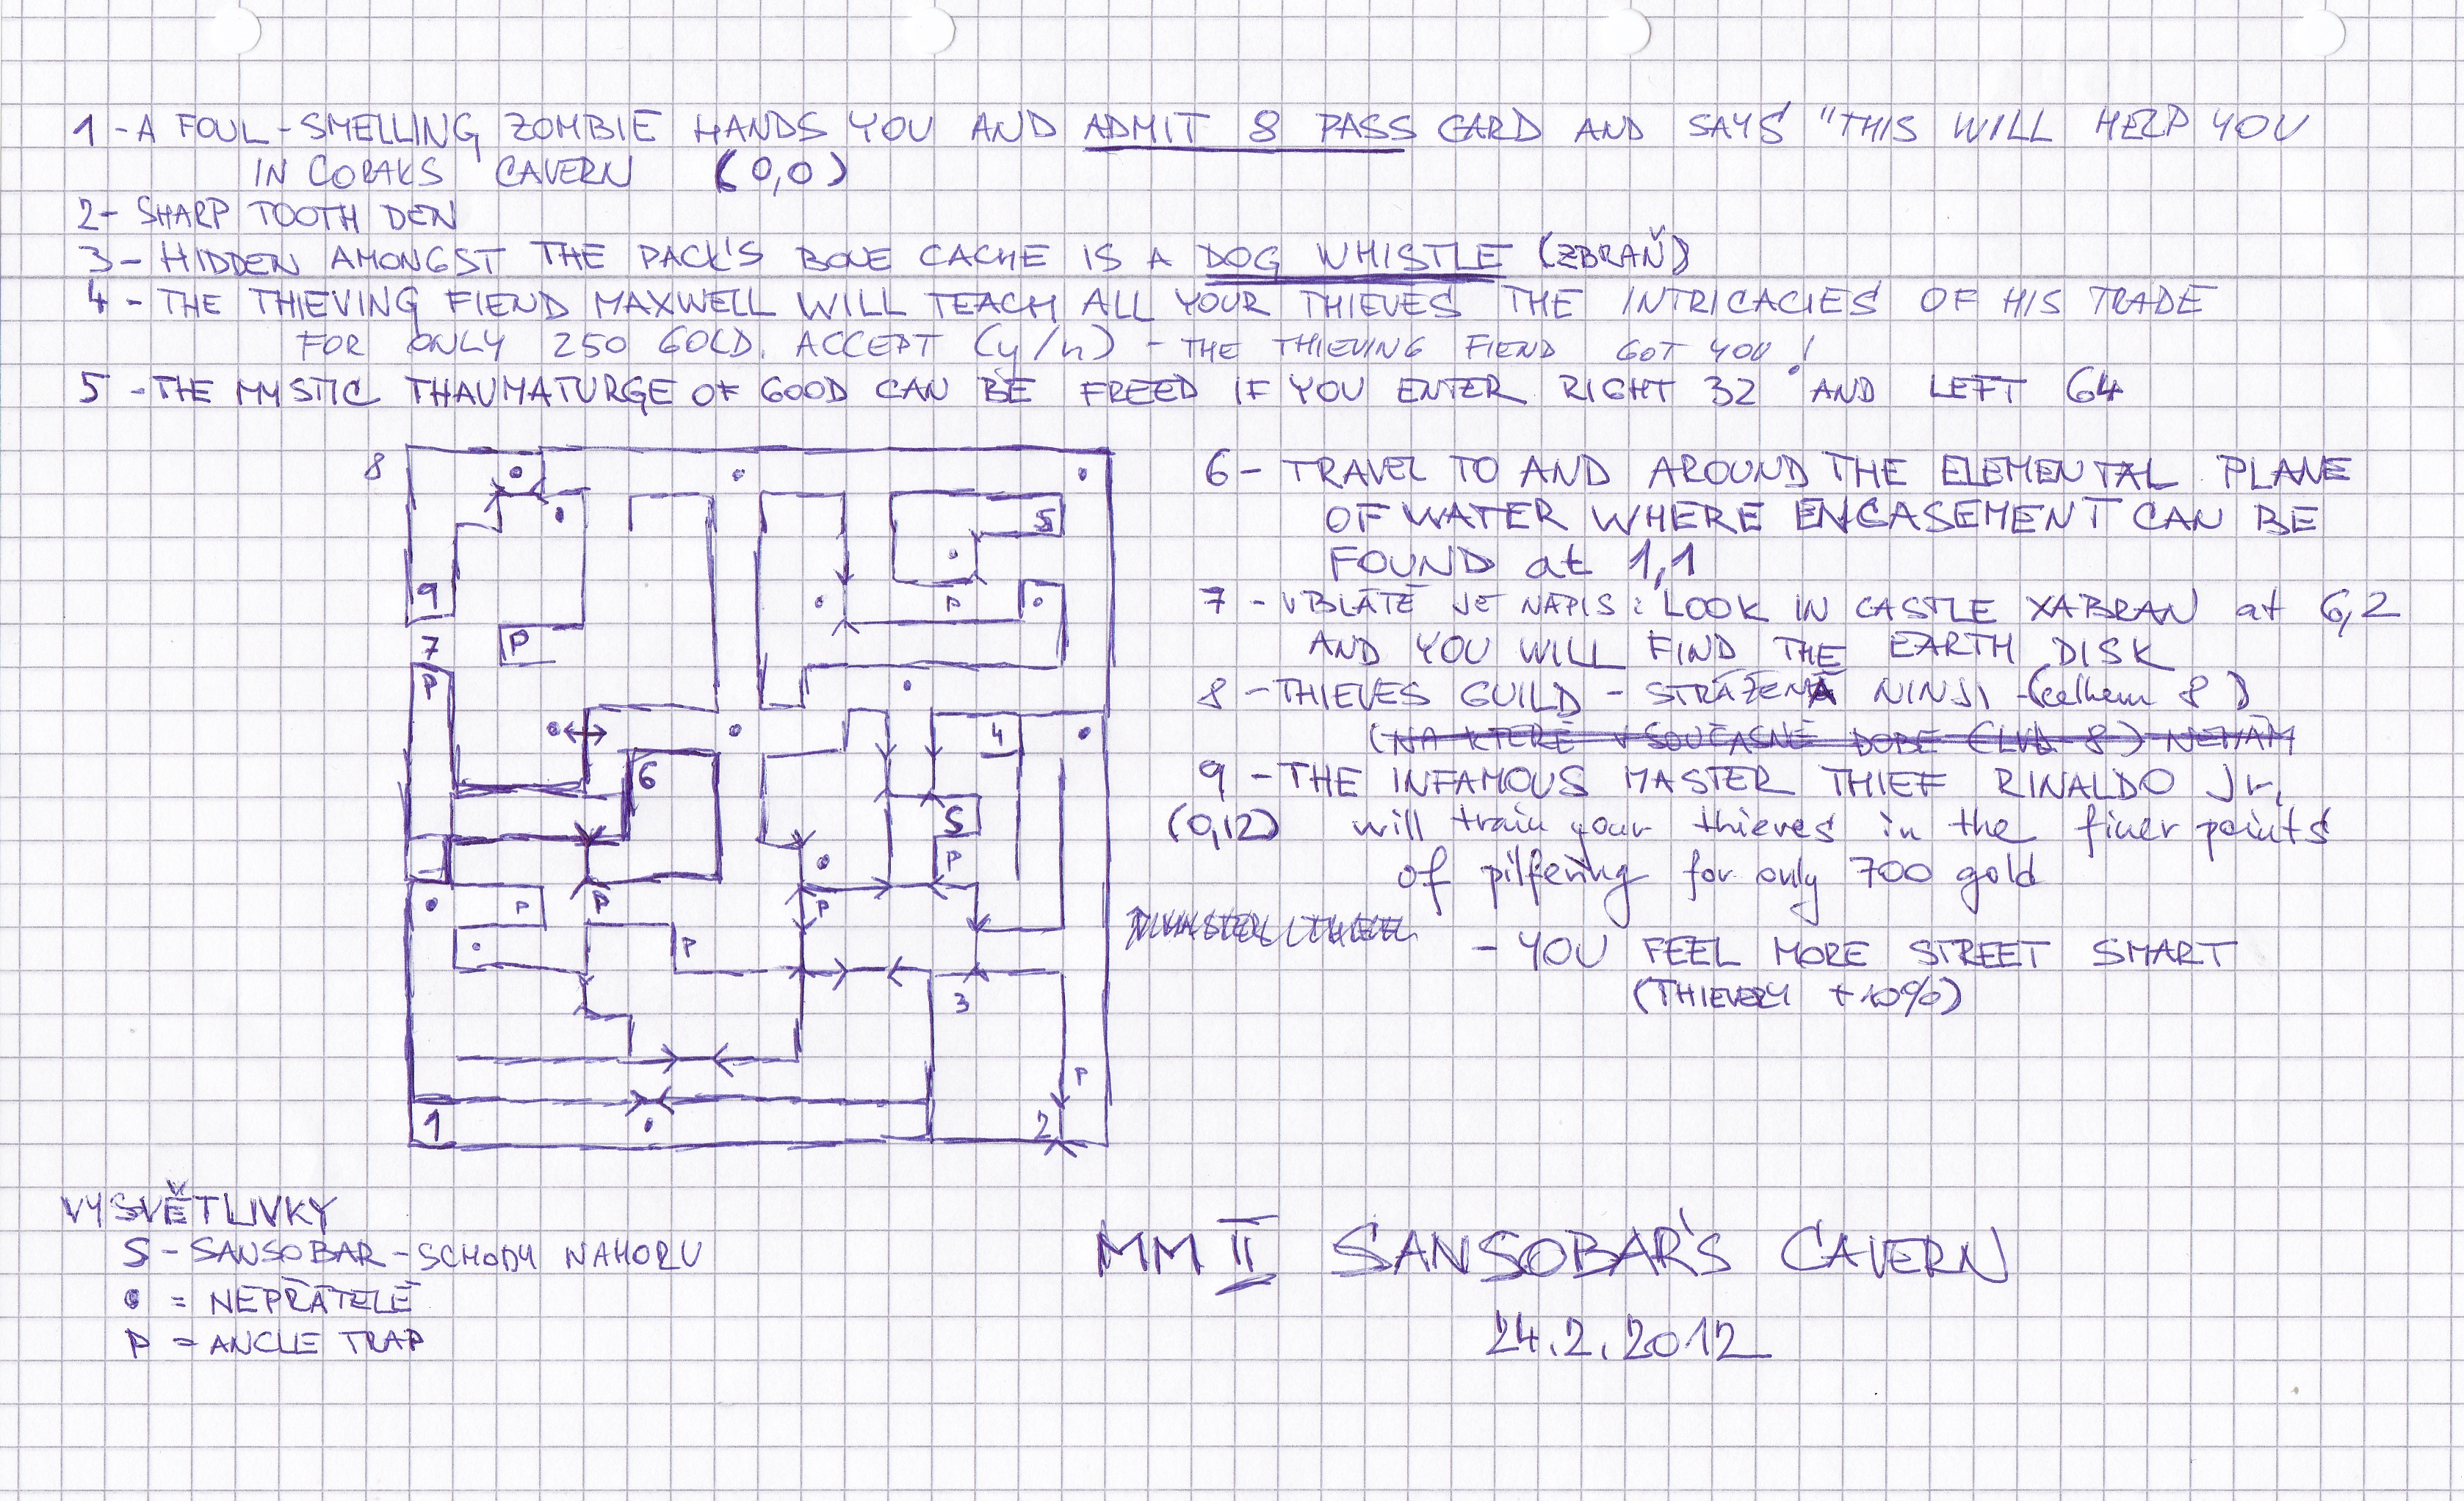 1 - A FOUL-SMELLING ZOMBIE HANDS YOU AND ADMIT 8 PASS CARD AND SAYS "THIS WILL HELP YOU
IN CORAKS CAVERN (0,0)
2 - SHARP TOOTH DEN
3 - HIDDEN AMONGST THE PACK'S BONE CACHE IS A DOG WHISTLE (ZBRAŇ)
4 - THE THIEVING FIEND MAXWELL WILL TEACH ALL YOUR THIEVES THE INTRICACIES OF HIS TRADE
FOR ONLY 250 GOLD. ACCEPT (y/n) - THE THIEVING FIEND GOT YOU!
5 - THE MYSTIC THAUMATURGE OF GOOD CAN BE FREED IF YOU ENTER RIGHT 32 AND LEFT 64
8
S
9
P
P
7
P
4
6
S
P
P
P
P
P
3
P
1
2
6 - TRAVEL TO AND AROUND THE ELEMENTAL PLANE
OF WATER WHERE ENCASEMENT CAN BE
FOUND at 1,1
7 - V BLÁTĚ JE NÁPIS: LOOK IN CASTLE XABRAN at 6,2
AND YOU WILL FIND THE EARTH DISK
8 - THIEVES GUILD - STRÁŽENÁ NINJI - (celkem 8)
(NA KTERÉ V SOUČASNÉ DOBĚ (LVL 8) NEMÁM
9 - THE INFAMOUS MASTER THIEF RINALDO Jr.
(0,12) will train your thieves in the finer points
of pilfering for only 700 gold
- YOU FEEL MORE STREET SMART
(THIEVERY +10%)
VYSVĚTLIVKY
S - SANSOBAR - SCHODY NAHORU
• = NEPŘÁTELÉ
P = ANCLE TRAP
MM II SANSOBAR'S CAVERN
24.2.2012